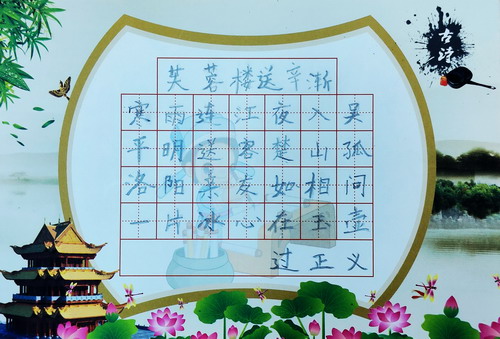 古诗
芙蓉楼送辛渐
寒雨连江夜入吴
平明送客楚山孤
洛阳亲友如相问
一片冰心在玉壶
过正义